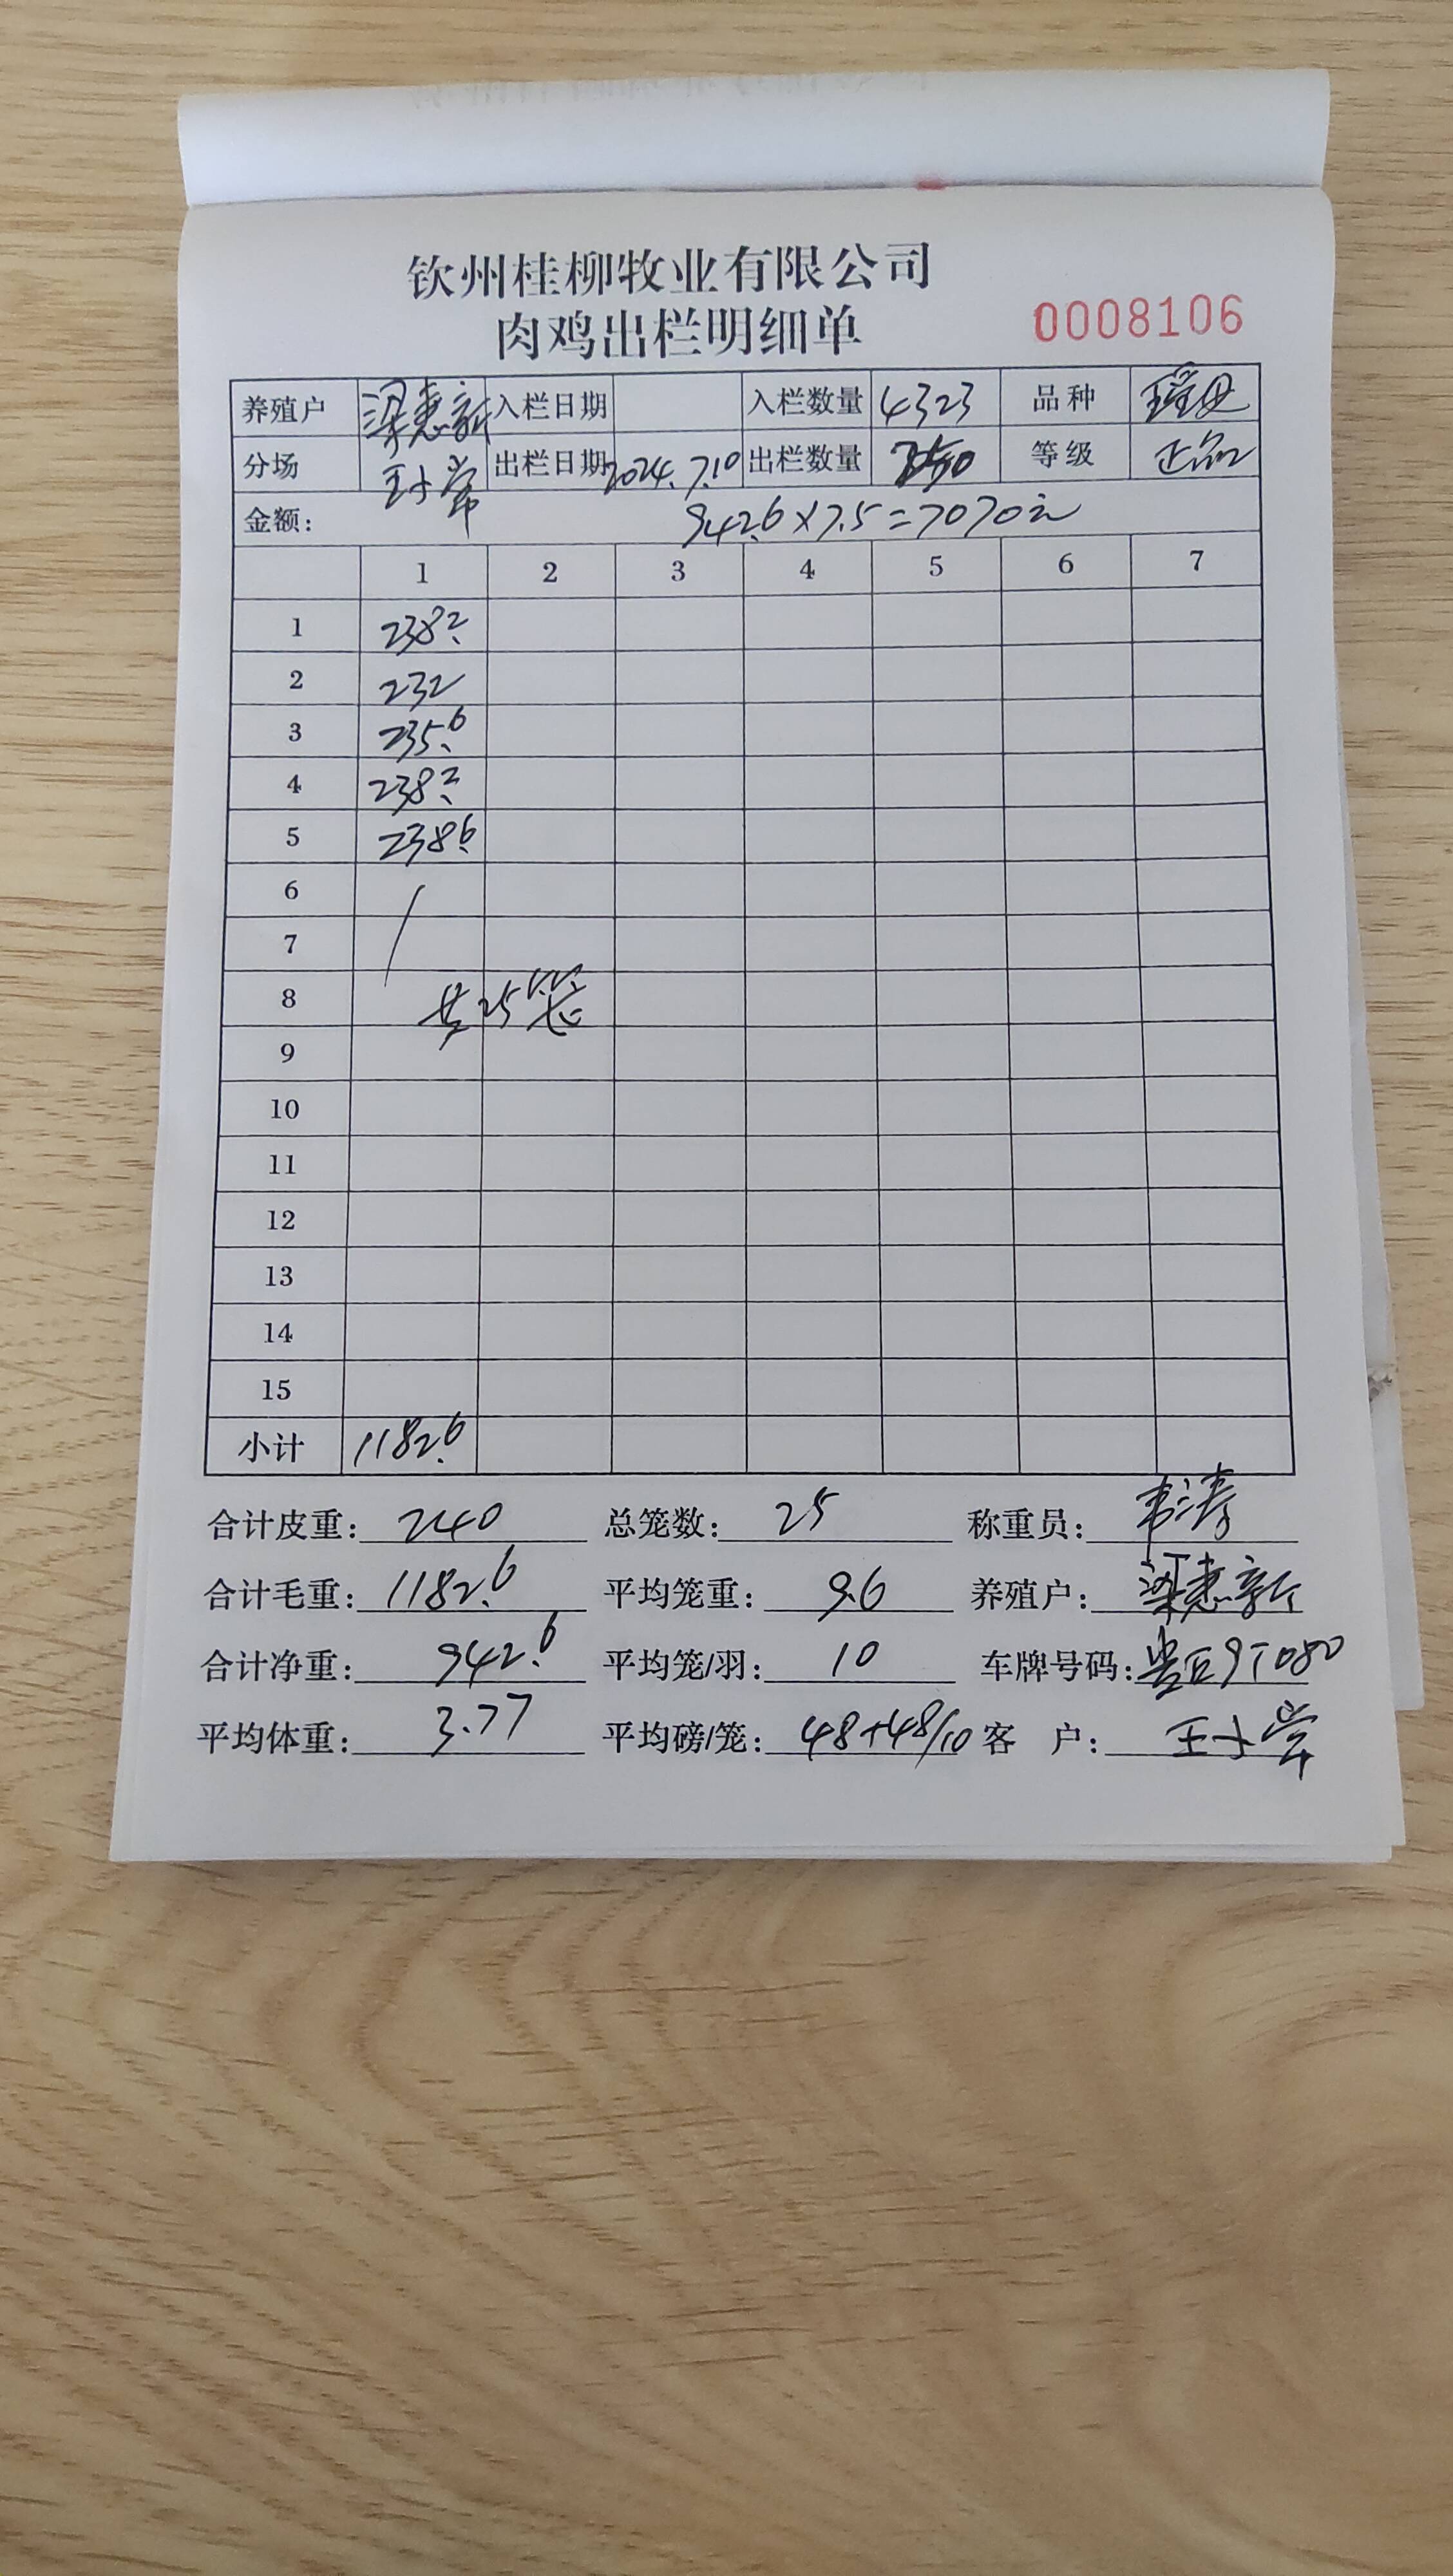 钦州桂柳牧业有限公司
肉鸡出栏明细单
0008106
养殖户 梁惠新 入栏日期 入栏数量 4323 品种
分场 出栏日期 2024.7.10 出栏数量 等级 正品
金额: 942.6×7.5=7070元
1 2 3 4 5 6 7
1 238.2
2 232
3 235.6
4 238.2
5 238.6
6
7
8 共25笼
9
10
11
12
13
14
15
小计 1182.6
合计皮重: 240 总笼数: 25 称重员: 韦涛
合计毛重: 1182.6 平均笼重: 9.6 养殖户: 梁惠新
合计净重: 942.6 平均笼/羽: 10 车牌号码:
平均体重: 3.77 平均磅/笼: 48+48/10 客 户: